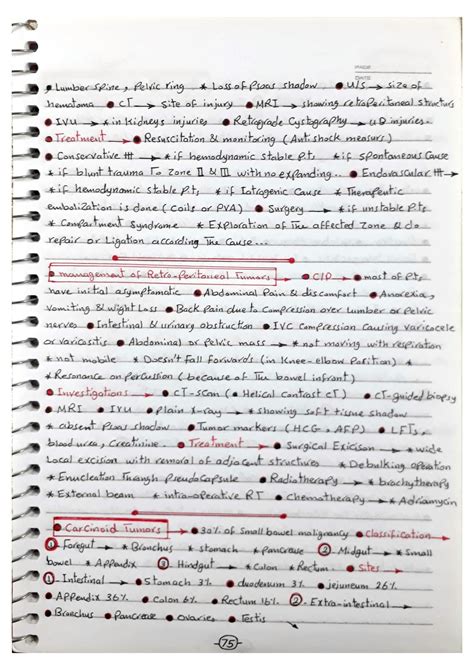 PAGE
DATE
• Lumber spine, pelvic ring * Loss of Psoas shadow • U/S → size of
hematoma • CT → site of injury • MRI → showing retroperitoneal structurs
• IVU → * in kidneys injuries • Retrograde Cystography → UB injuries.
• Treatment → • Resuscitation & monitoring (Antishock measurs)
• Conservative ttt → * if hemodynamic stable P.ts * if spontaneous Cause
* if blunt trauma To Zone II & III with no expanding.. • Endovascular ttt →
* if hemodynamic stable P.ts * if Iatrogenic Cause * Therapeutic
embolization is done (Coils or PVA) • Surgery → * if unstable P.ts
* Compartment Syndrome * Exploration of The affected Zone & do
repair or Ligation according The Cause...
• management of Retro-Peritoneal Tumors → • C/P → • most of P.ts
have initial asymptomatic • Abdominal Pain & discomfort • Anorexia,
vomiting & wight Loss • Back Pain due to Compression over Lumber or Pelvic
nerves • Intestinal & urinary obstruction • IVC Compression Causing varicocele
or varicositis • Abdominal or Pelvic mass → * not moving with respiration
* not mobile * Doesn't fall forwards (in Knee-elbow Position) *
* Resonance on percussion (because of The bowel infront)
• Investigations → • CT-scan (• Helical Contrast CT) • CT-guided biopsy
• MRI • IVU • plain X-ray → * showing soft tissue shadow
* absent Psoas shadow • Tumor markers (HCG, AFP) • LFTs,
blood urea, Creatinine • Treatment → • Surgical Exicison → * wide
Local excision with removal of adjacent structures * Debulking operation
* Enucleation Through Pseudocapsule • Radiotherapy → * brachytherapy
* External beam * intra-operative RT • Chemotherapy → * Adriamycin
• Carcinoid Tumors → • 30% of Small bowel malignancy • Classification →
① Foregut → * Bronchus * stomach * Pancrease ② Midgut → * Small
bowel * Appendix ③ Hindgut → * Colon * Rectum • Sites →
① Intestinal → • Stomach 3% • duodenum 3% • jejuneum 26%
• Appendix 36% • Colon 6% • Rectum 16% ② Extra-intestinal →
• Bronchus • Pancrease • ovaries • Testis
75